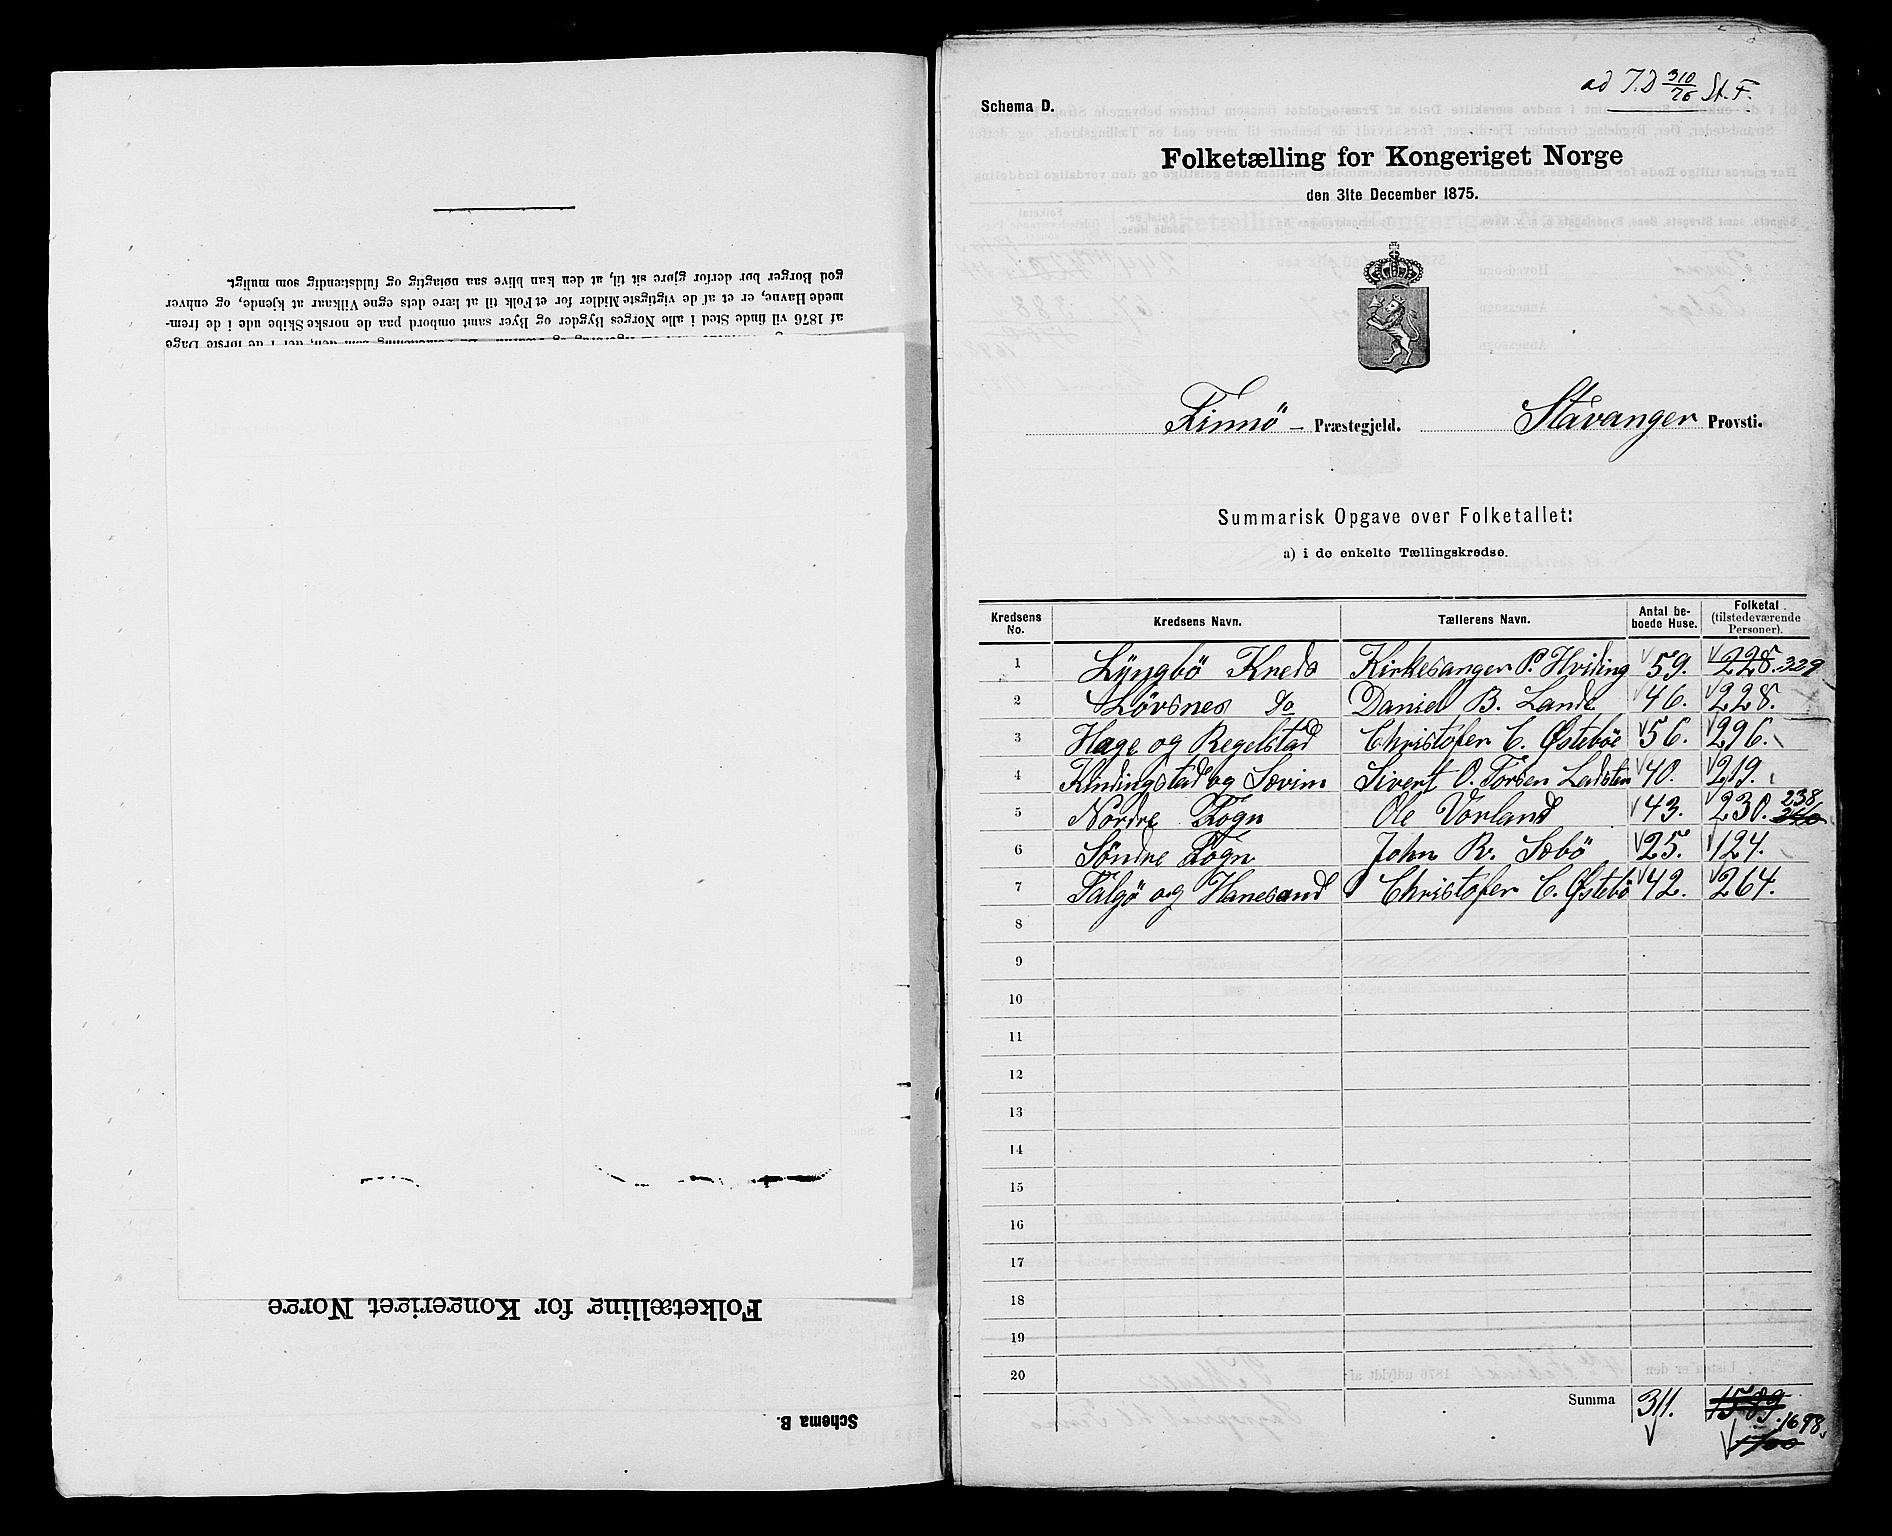 god Borger bør derfor gjøre sit til, at den kan blive saa nøiagtig og fuldstændig som muligt.
mede Havne, er et af de vigtigste Midler for et Folk til at lære dets egne Vilkaar at kjende, og enhver
af 1876 vil finde Sted i alle Norges Bygder og Byer samt ombord paa de norske Skibe ude i de frem-
Folketælling for Kongeriget Norge
Schema B.
ad J.D 310/76 St. F.
Schema D.
Folketælling for Kongeriget Norge
den 31te December 1875.
Finnö - Præstegjeld. Stavanger Provsti.
Summarisk Opgave over Folketallet:
a) i de enkelte Tællingskredse.
Kredsens No. Kredsens Navn. Tællerens Navn. Antal beboede Huse. Folketal (tilstedeværende Personer).
1 Lyngbö Kreds Kirkesanger P. Hviding 59. 228. 339
2 Løvsnes do Daniel B. Lande 46. 228.
3 Hage og Regelstad Christofer C. Østebøe 56. 296.
4 Kindingstad og Sævim Sivert O. Torsen Ladsten 40. 219.
5 Nordre Fogn Ole Vorland 43. 230. 238
6 Søndre Fogn John R. Sæbö 25. 124.
7 Talgö og Hanesand Christofer C. Østebö 42. 264.
8
9
10
11
12
13
14
15
16
17
18
19
20
Summa 311. 1589 1698.
1700